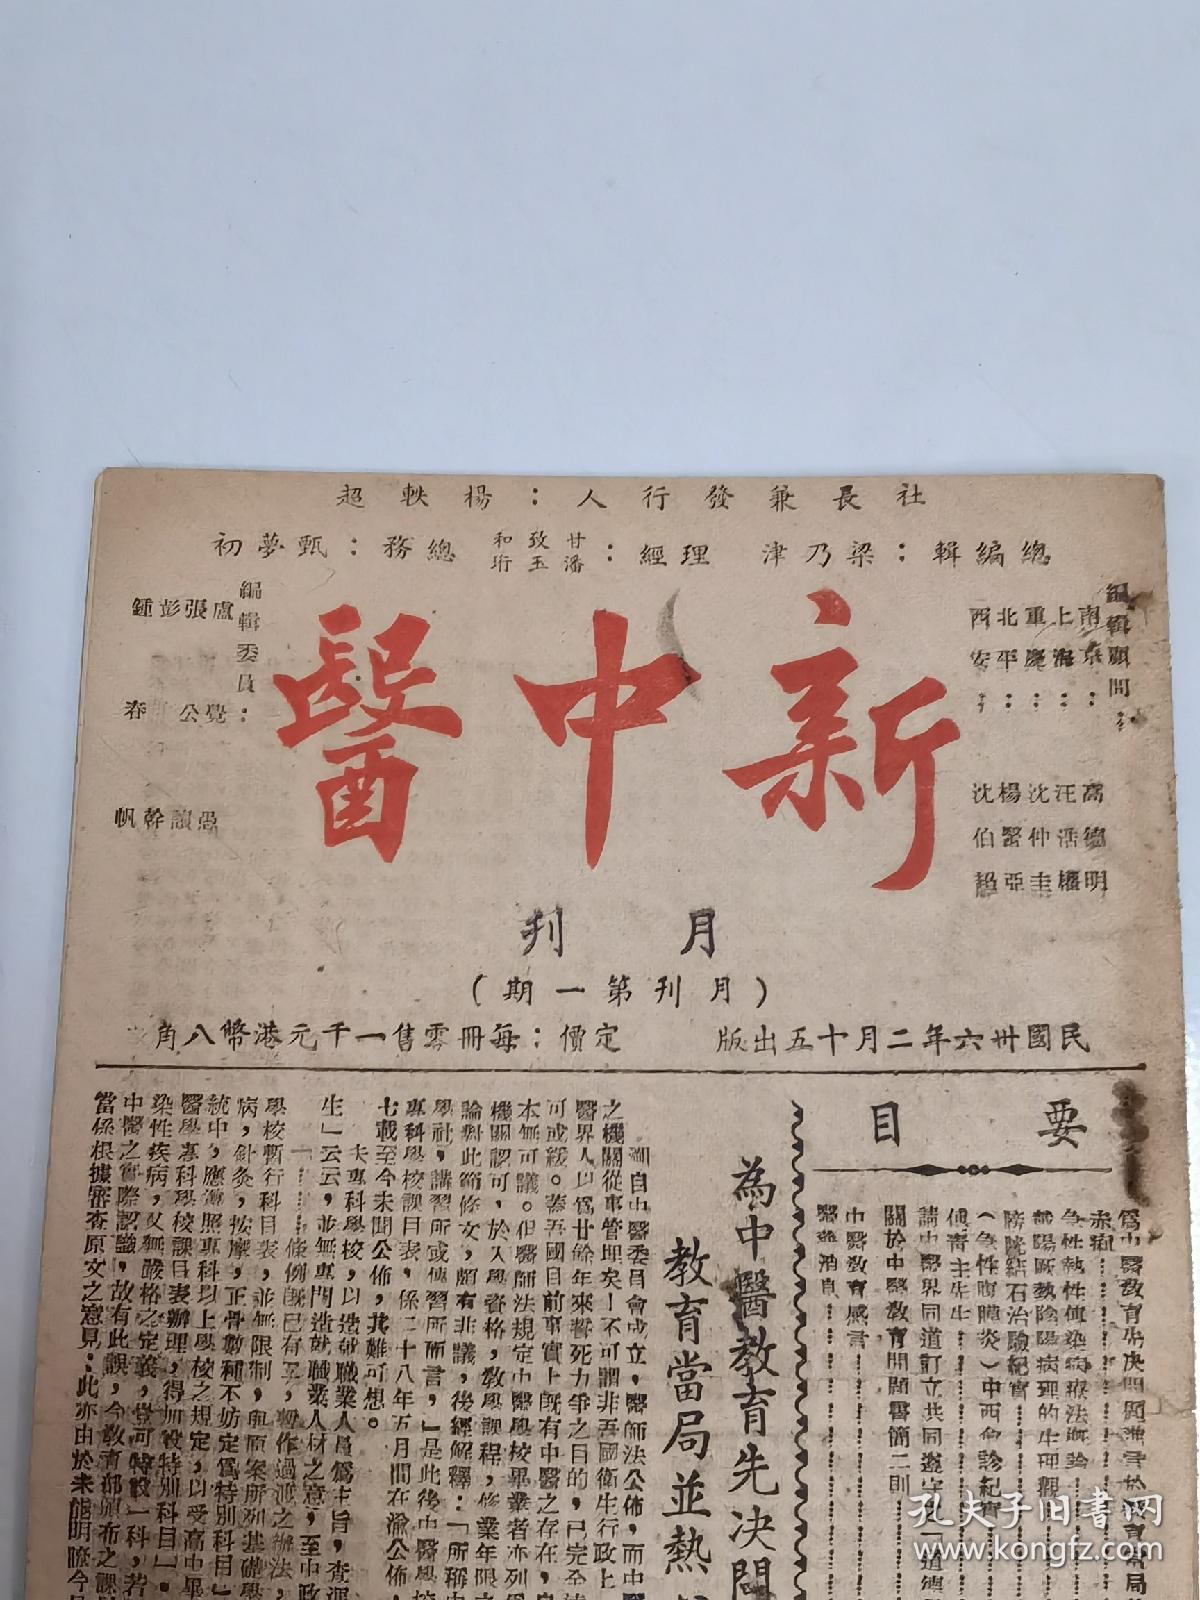 社長兼發行人：楊軼超
總編輯：梁乃津
經理：甘致和 潘玉珩
總務：甄夢初
編輯顧問：
南京：高德明
上海：汪浩權
重慶：沈仲圭
北平：楊醫亞
西安：沈伯超
新中醫
編輯委員：
盧覺愚
張公讓
彭幹
鍾春帆
月刊
（月刊第一期）
民國卅六年二月十五出版
定價：每冊零售一千元港幣八角
要目
爲中醫教育先决問題進言於教育當局
赤痢
急性熱性傳染病療法概論
戴陽厥熱陰陽病理的生理觀
膀胱結石治驗紀實
（急性腹膜炎）中西會診紀實
傅青主先生
請中醫界同道訂立共同遵守
關於中醫教育問題醫簡二則
中醫教育感言
醫藥消息
為中醫教育先决問
教育當局並熱
溯自中醫委員會成立，醫師法公佈，而中醫
之機關從事管理矣！不可謂非吾國衛生行政上
醫界人以爲廿餘年來誓死力爭之目的，已完全
可或緩。蓋吾國目前事實上旣有中醫之存在，
本無可議。但醫師法規定中醫學校畢業者亦列
機關認可，於入學資格，敎學課程，修業年限
論對此節條文，頗有非議，後經解釋：「所稱中
學社，講習所或傳習所而言，」是此後中醫學校
專科學校課目表，係二十八年五月間在渝公佈，
七載至今未聞公佈，其難可想。
夫專科學校，以造就職業人員爲主旨，查
生」云云，並無專門造就職業人材之意，至中政
「……條例旣已有孚，暫作過渡之辦法，
學校暫行科目表，並無限制，與原案所列基礎學
病，針灸，按摩，正骨數種不妨定爲特別科目」
統中，應遵照專科以上學校之規定，以受高中畢
醫學專科學校課目表辦理，得加設特別科目」。
染性疾病，又無嚴格之定義，豈可特設一科，若
中醫之實際認識，故有此誤，今敎育部頒布之課
當係根據審查原文之意見：此亦由於未能明瞭今
孔夫子旧书网
www.kongfz.com